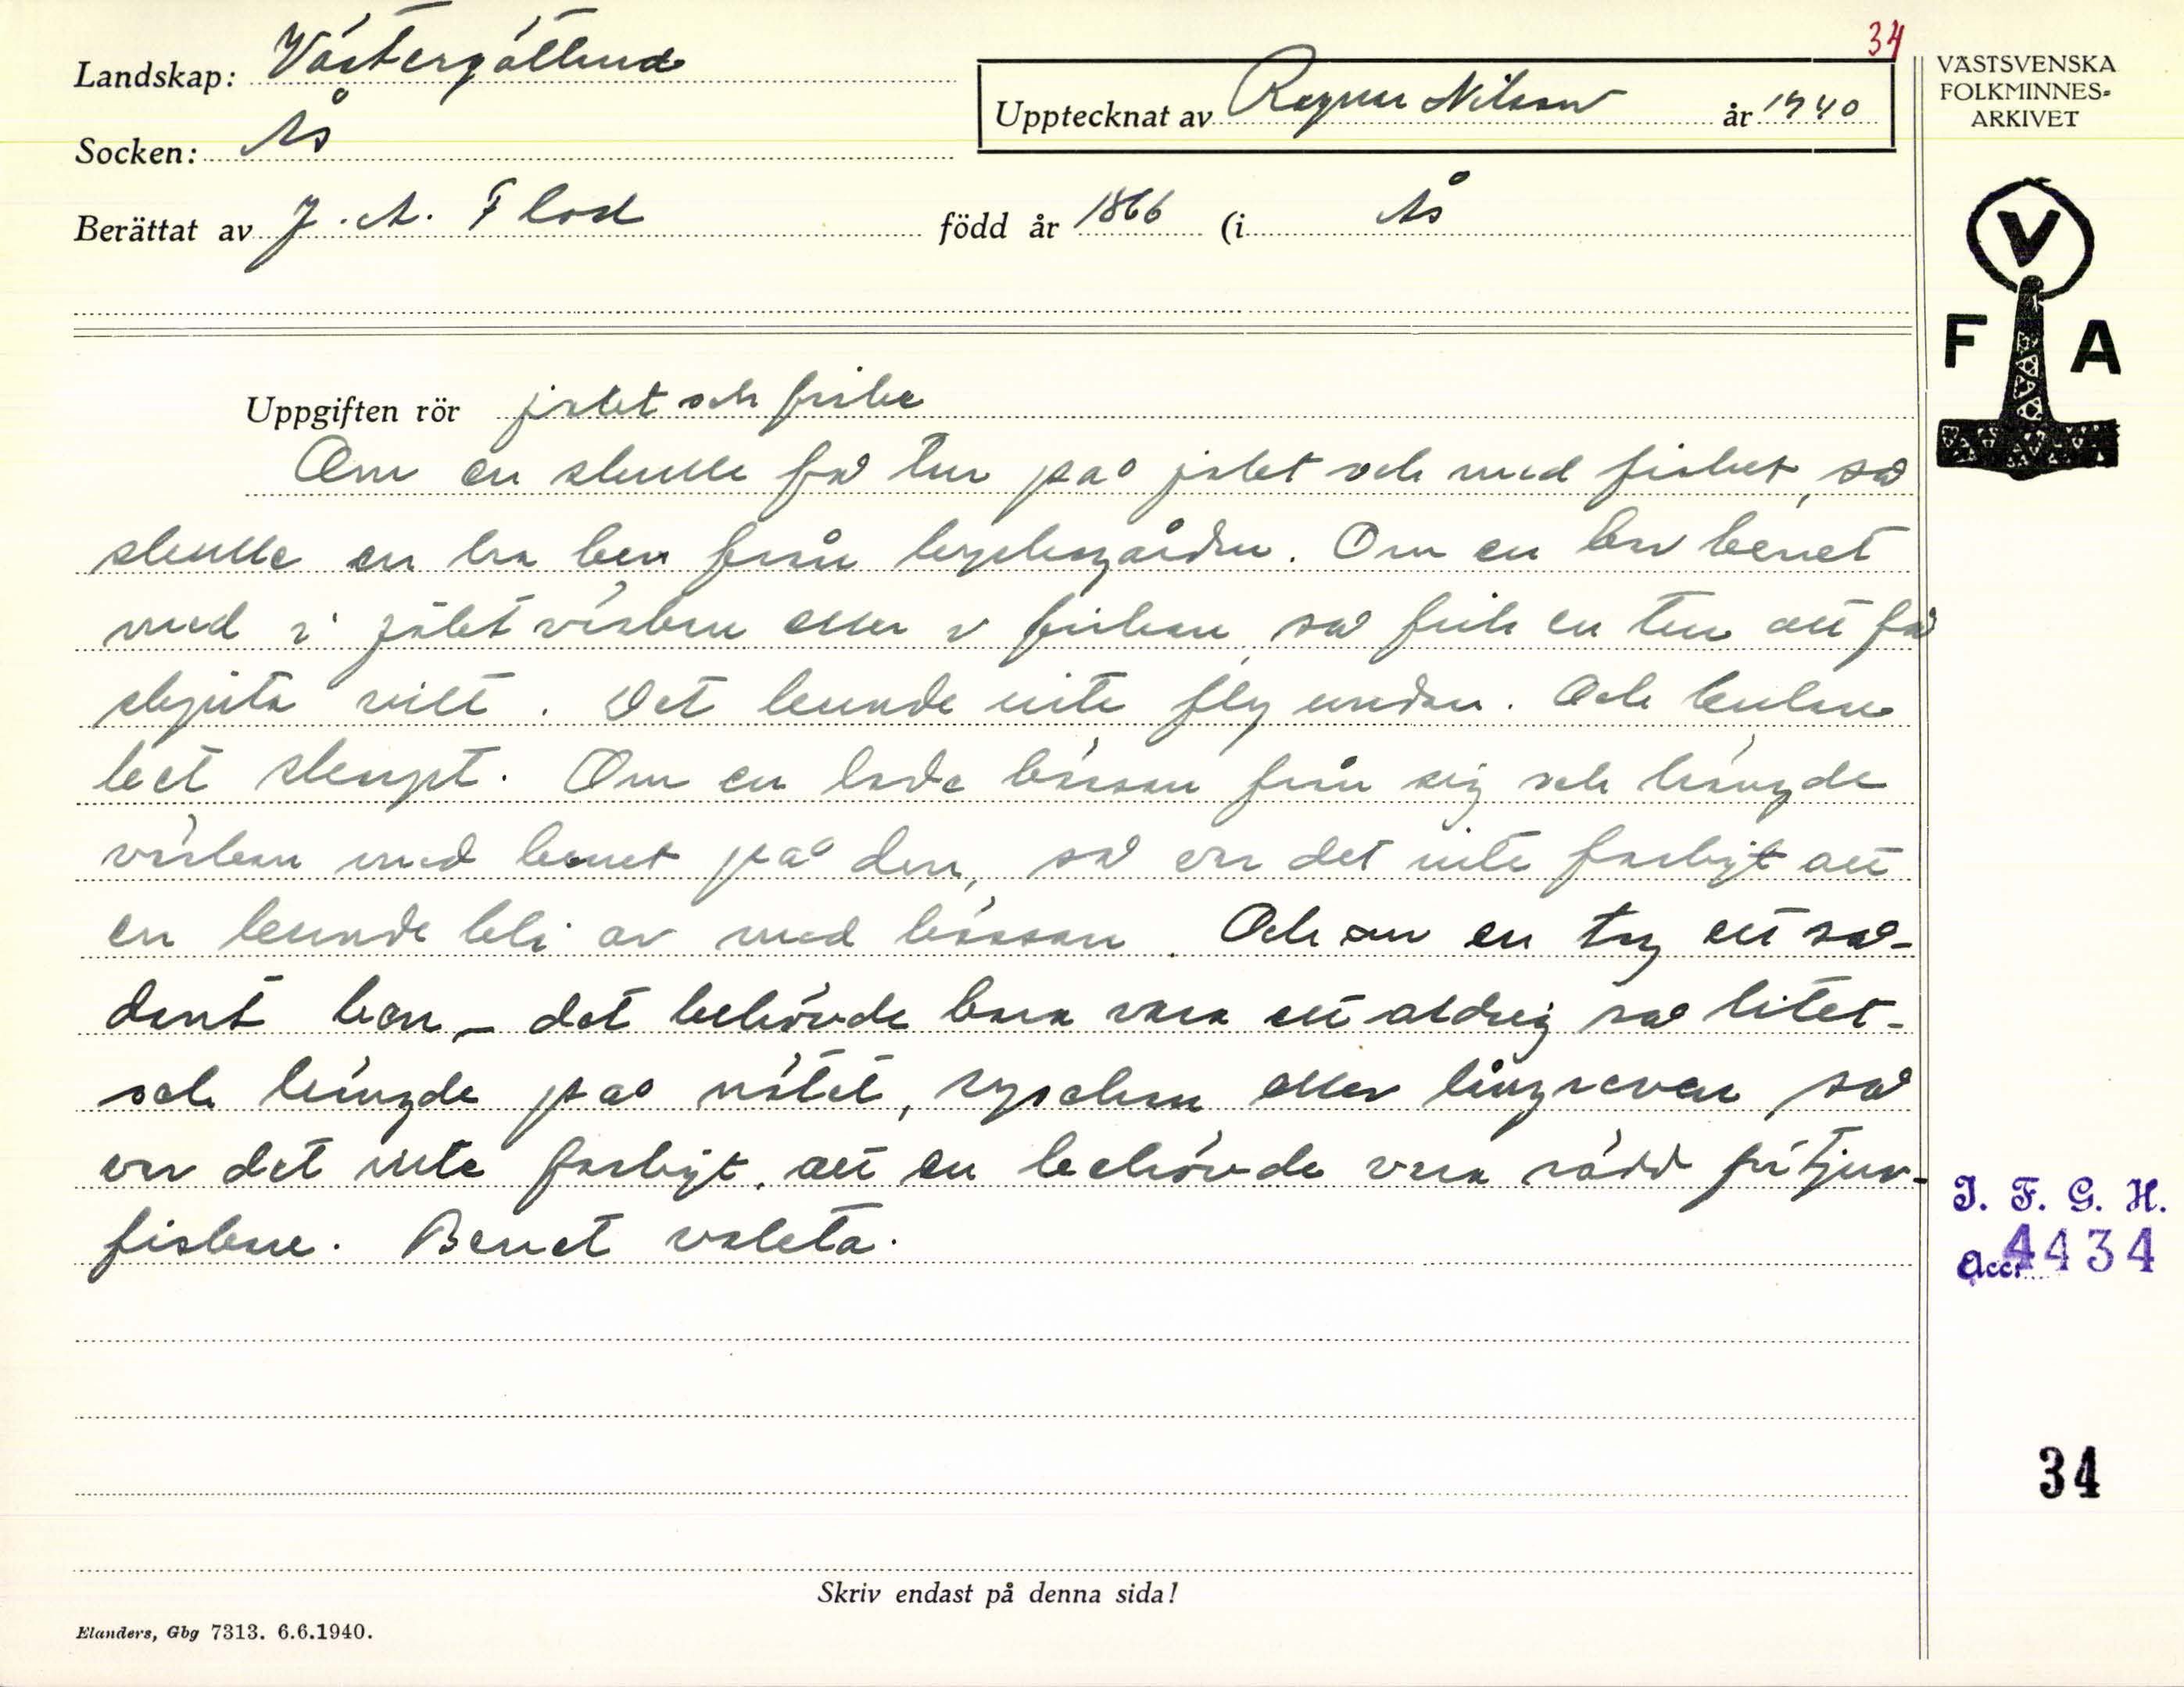 34
Landskap: Västergötland
Upptecknat av Ragnar Nilsson år 1940
VÄSTSVENSKA
FOLKMINNES-
ARKIVET
Socken: Ås
Berättat av J. A. Flod född år 1866 (i Ås
V
F A
Uppgiften rör jakt och fiske
Om en skulle få tur på jakt och med fisket, så
skulle en ha ben från kyrkogården. Om en bar benet
med i jaktväskan eller i fickan, så fick en tur att få
skjuta vilt. Det kunde inte fly undan. Och kulan
tet skarpt. Om en lade bössan från sig och hängde
väskan med benet på den, så var det inte farligt att
en kunde bli av med bössan. Och om en tog ett så-
dant ben – det behövde bara vara ett aldrig så litet –
och hängde på nätet, ryssjan eller långreven, så
var det inte farligt, att en behövde vara rädd för tjuv-
fiskare. Benet vakta.
I. F. G. H.
Acc. 4434
34
Skriv endast på denna sida!
Elanders, Gbg 7313. 6.6.1940.